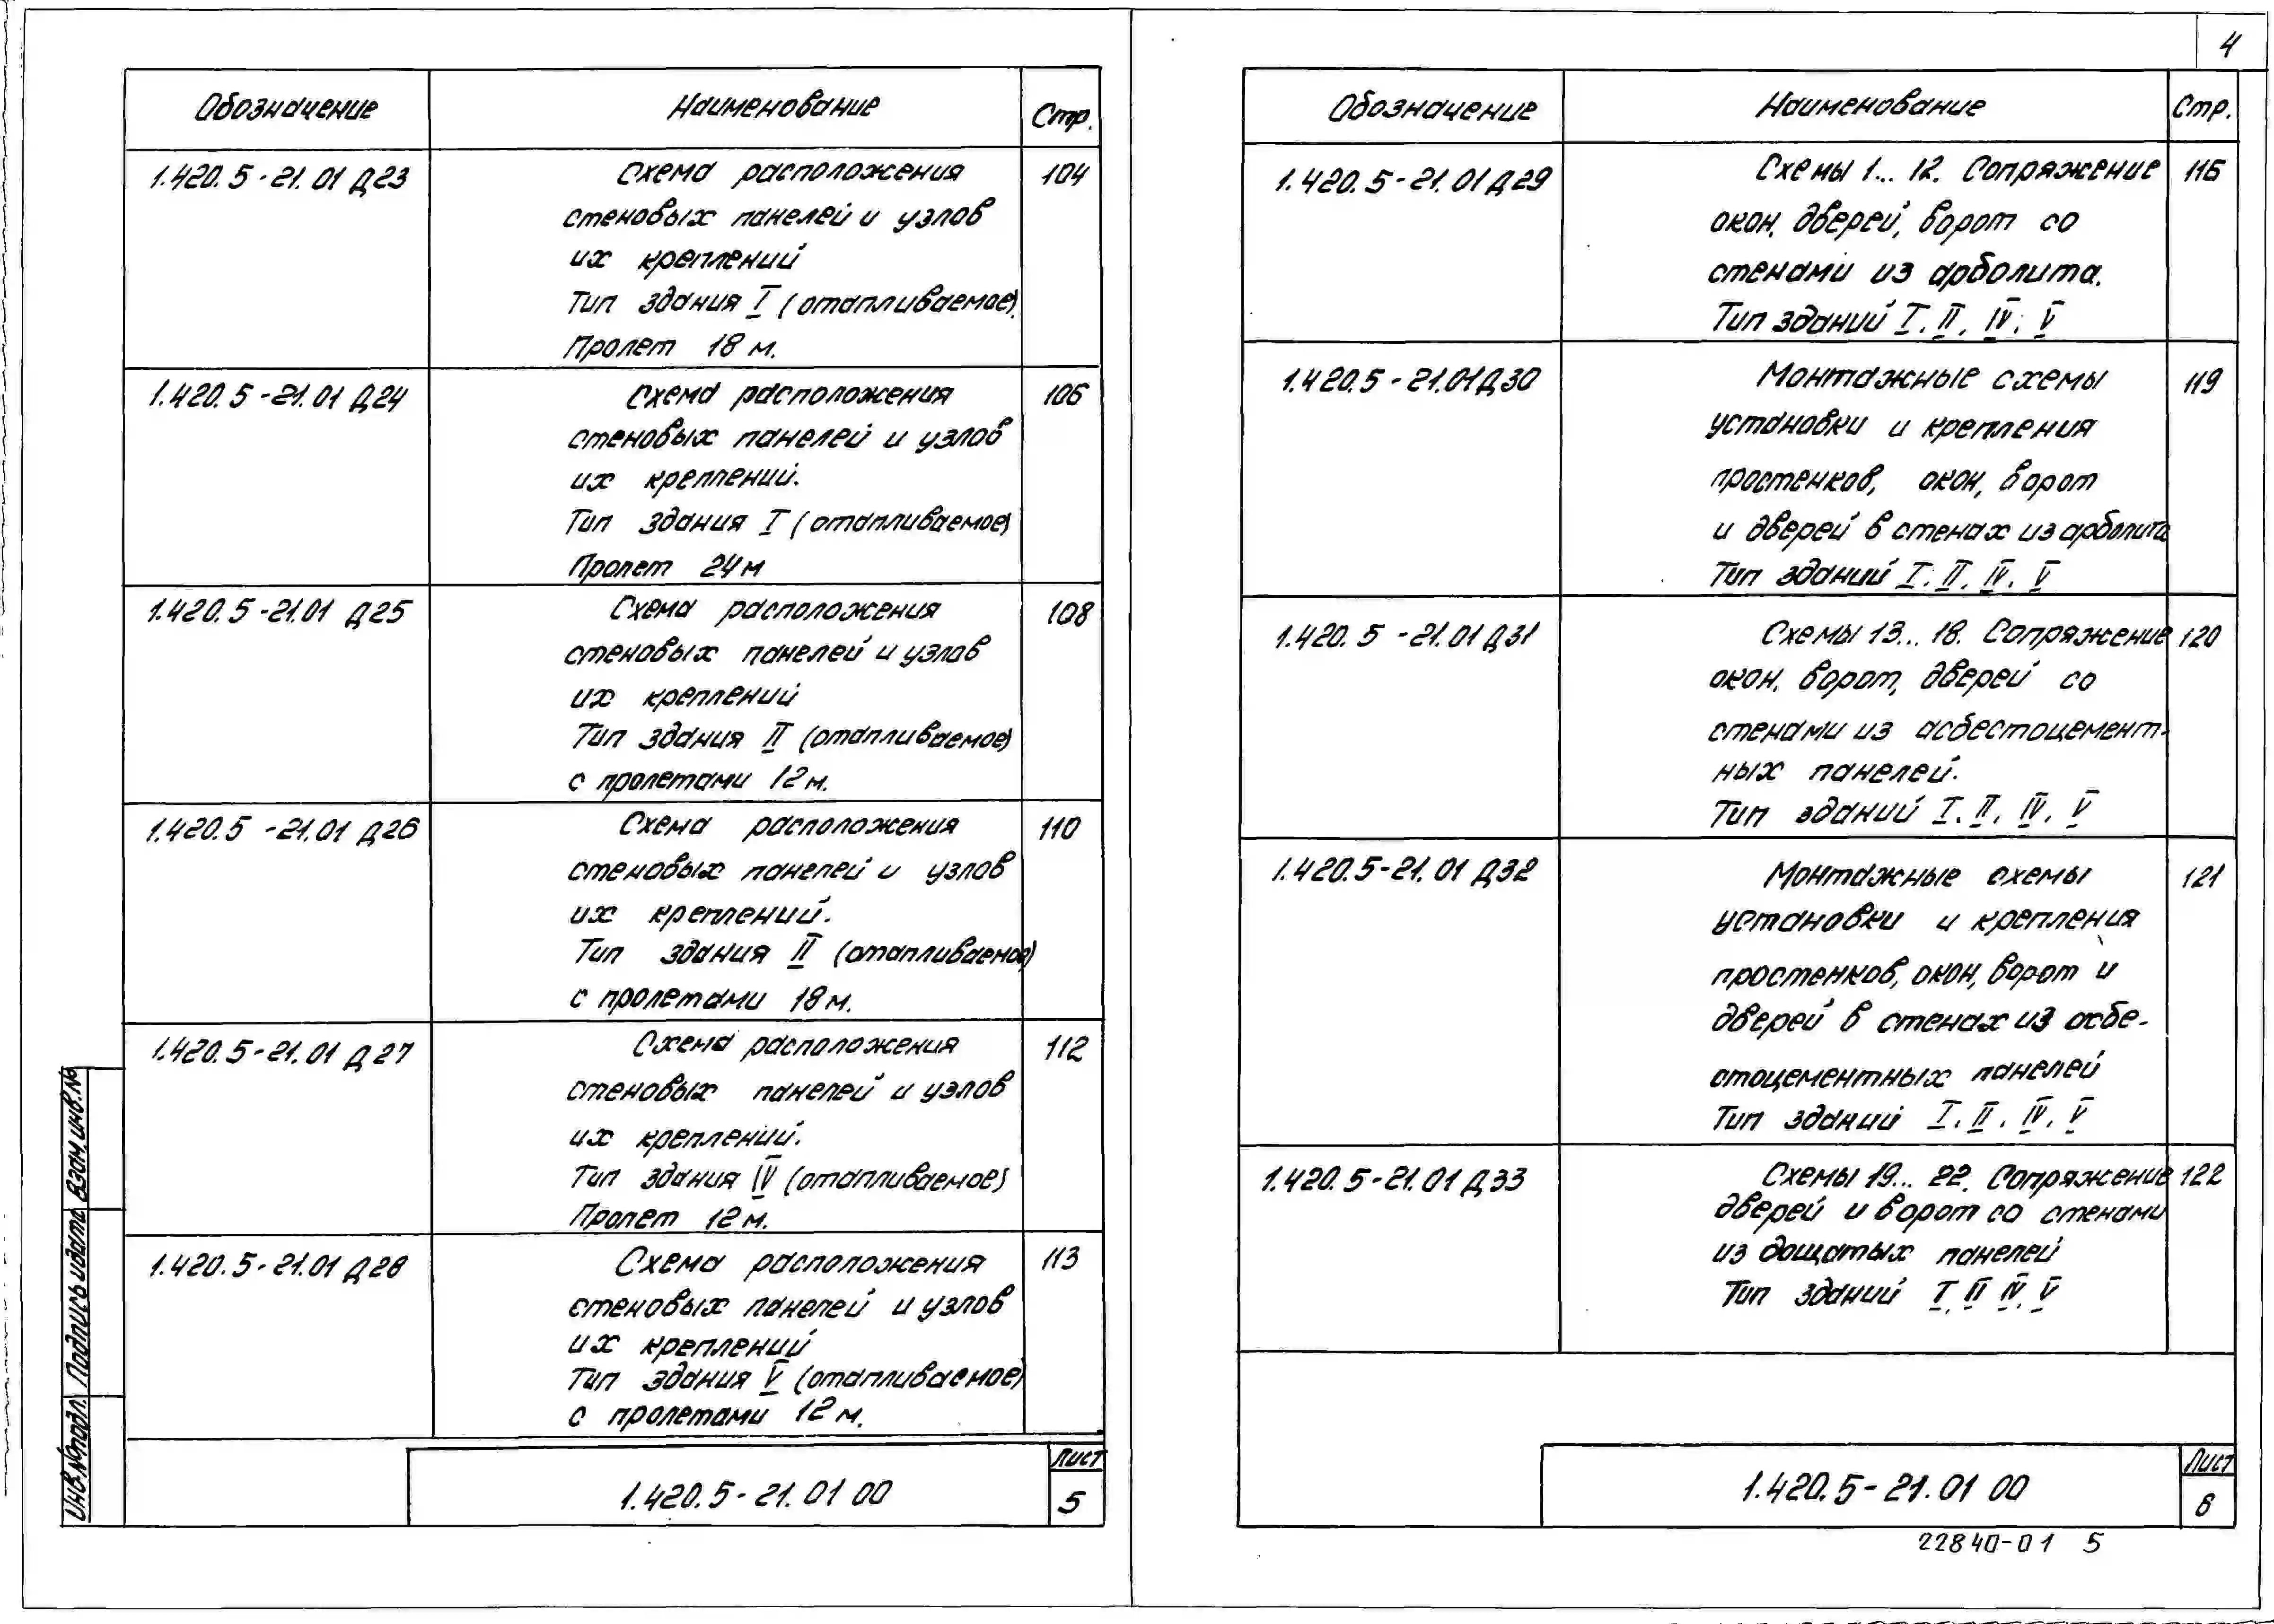 4
Обозначение Наименование Стр.
1.420.5-21.01 Д23 Схема расположения 104
стеновых панелей и узлов
их креплений
Тип здания I (отапливаемое).
Пролет 18 м.
1.420.5-21.01 Д24 Схема расположения 106
стеновых панелей и узлов
их креплений.
Тип здания I (отапливаемое)
Пролет 24 м
1.420.5-21.01 Д25 Схема расположения 108
стеновых панелей и узлов
их креплений
Тип здания II (отапливаемое)
с пролетами 12 м.
1.420.5-21.01 Д26 Схема расположения 110
стеновых панелей и узлов
их креплений.
Тип здания II (отапливаемое)
с пролетами 18 м.
1.420.5-21.01 Д27 Схема расположения 112
стеновых панелей и узлов
их креплений.
Тип здания IV (отапливаемое)
Пролет 12 м.
1.420.5-21.01 Д28 Схема расположения 113
стеновых панелей и узлов
их креплений
Тип здания V (отапливаемое)
с пролетами 12 м.
1.420.5-21.01 00
Лист
5
Инв.№подл. Подпись и дата Взам.инв.№
Обозначение Наименование Стр.
1.420.5-21.01 Д29 Схемы 1... 12. Сопряжение 116
окон, дверей, ворот со
стенами из арболита.
Тип зданий I, II, IV, V
1.420.5-21.01 Д30 Монтажные схемы 119
установки и крепления
простенков, окон, ворот
и дверей в стенах из арболита
Тип зданий I, II, IV, V
1.420.5-21.01 Д31 Схемы 13... 18. Сопряжение 120
окон, ворот, дверей со
стенами из асбестоцемент-
ных панелей.
Тип зданий I, II, IV, V
1.420.5-21.01 Д32 Монтажные схемы 121
установки и крепления
простенков, окон, ворот и
дверей в стенах из асбе-
стоцементных панелей
Тип зданий I, II, IV, V
1.420.5-21.01 Д33 Схемы 19... 22. Сопряжение 122
дверей и ворот со стенами
из дощатых панелей
Тип зданий I, II, IV, V
1.420.5-21.01 00
Лист
6
22840-01 5